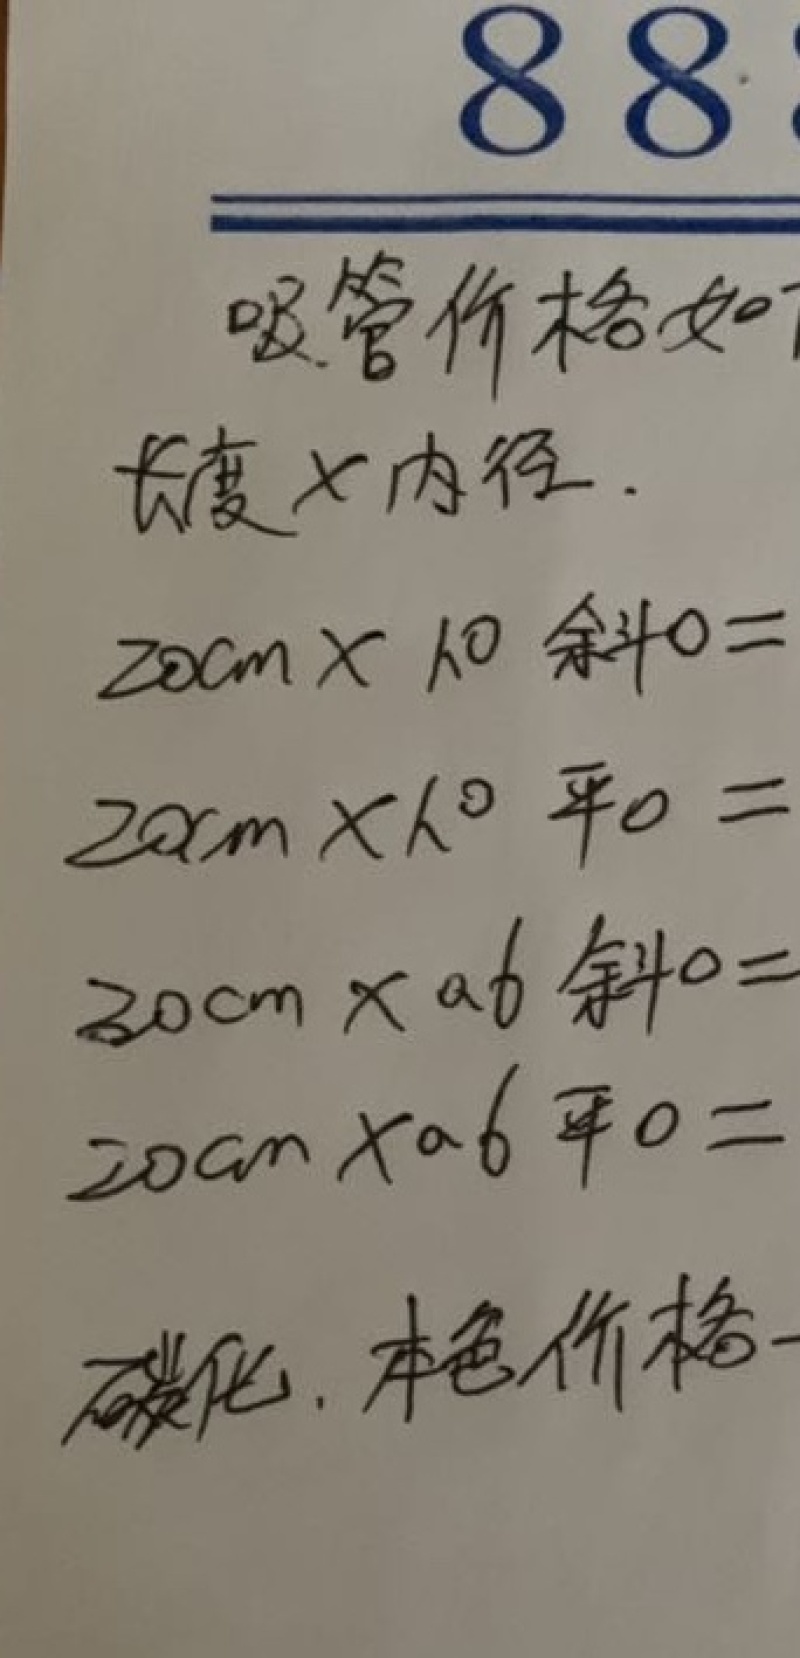 88
吸管价格如
长度×内径.
20cm×1.0 斜口=
20cm×1.0 平口=
20cm×0.6 斜口=
20cm×0.6 平口=
碳化.本色价格一